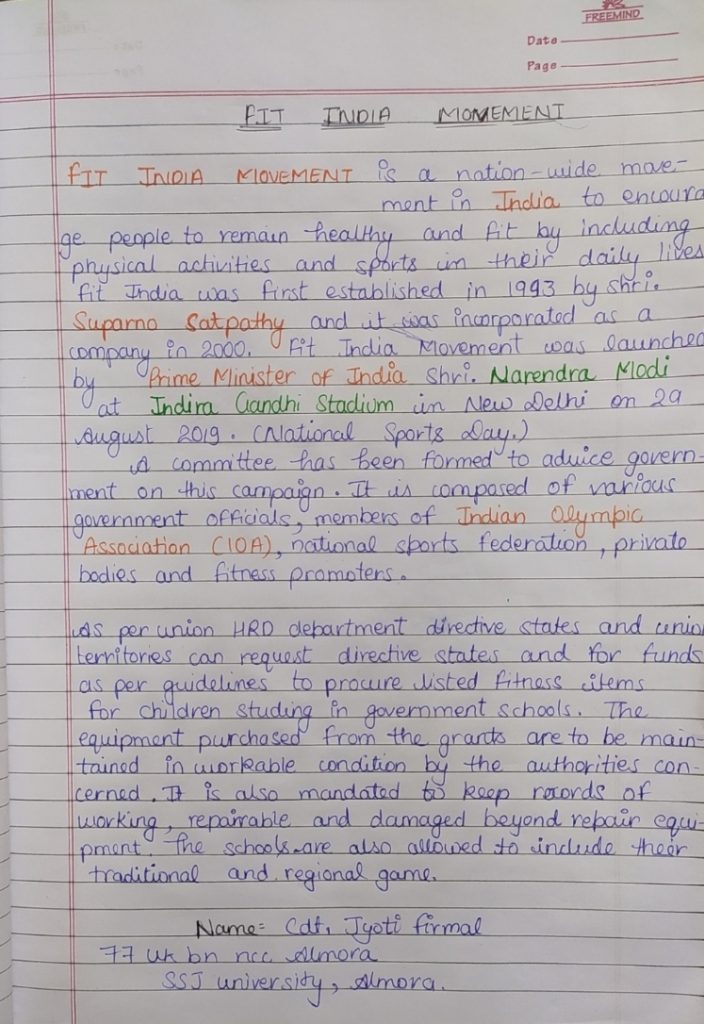 FREEMIND
Date
Page
FIT INDIA MOMEMENT
FIT INDIA MOVEMENT is a nation-wide move-
ment in India to encoura
ge people to remain healthy and fit by including
physical activities and sports in their daily lives
fit India was first established in 1993 by shri.
Suparno Satpathy and it was incorporated as a
company in 2000. Fit India Movement was launched
by Prime Minister of India Shri. Narendra Modi
at Indira Gandhi Stadium in New Delhi on 29
August 2019. (National Sports Day.)
A committee has been formed to advice govern-
ment on this campaign. It is composed of various
government officials, members of Indian Olympic
Association (IOA), national sports federation, private
bodies and fitness promoters.
As per union HRD debartment directive states and union
territories can request directive states and for funds
as per guidelines to procure listed fitness items
for children studing in government schools. The
equipment purchased from the grants are to be main-
tained in workeable condition by the authorities con-
cerned. It is also mandated to keep records of
working, repairable and damaged beyond repair equi-
pment. The schools are also allowed to include their
traditional and regional game.
Name= Cdt. Jyoti firmal
77 uk bn ncc Almora
SSJ university, Almora.